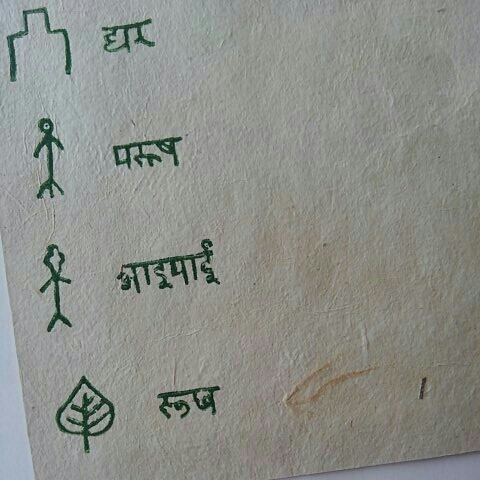 घर
परूष
आइमाई
रूख